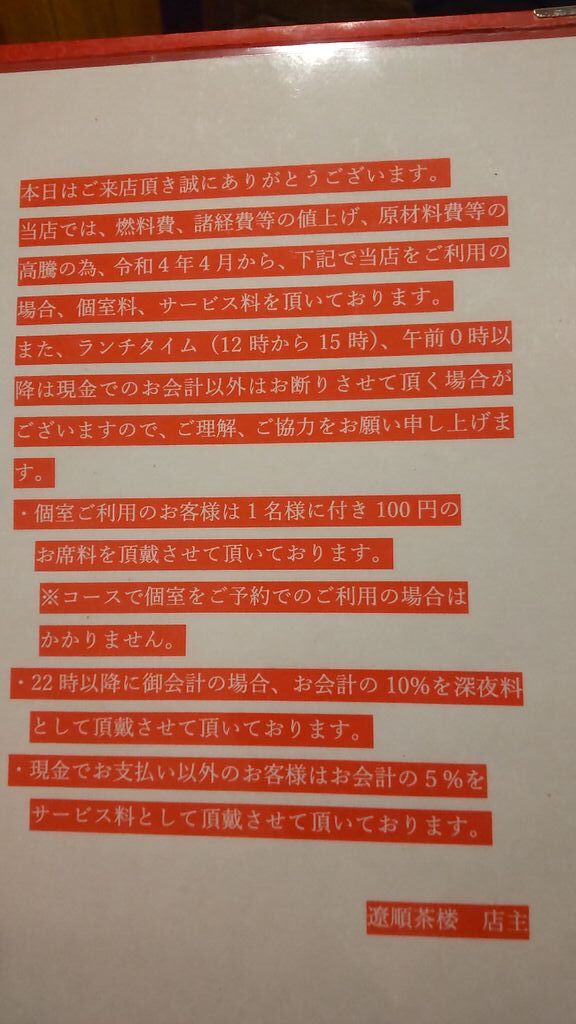 本日はご来店頂き誠にありがとうございます。
当店では、燃料費、諸経費等の値上げ、原材料費等の
高騰の為、令和４年４月から、下記で当店をご利用の
場合、個室料、サービス料を頂いております。
また、ランチタイム（12 時から 15 時）、午前０時以
降は現金でのお会計以外はお断りさせて頂く場合が
ございますので、ご理解、ご協力をお願い申し上げま
す。
・個室ご利用のお客様は１名様に付き 100 円の
お席料を頂戴させて頂いております。
※コースで個室をご予約でのご利用の場合は
かかりません。
・22 時以降に御会計の場合、お会計の 10%を深夜料
として頂戴させて頂いております。
・現金でお支払い以外のお客様はお会計の５％を
サービス料として頂戴させて頂いております。
遼順茶楼　店主